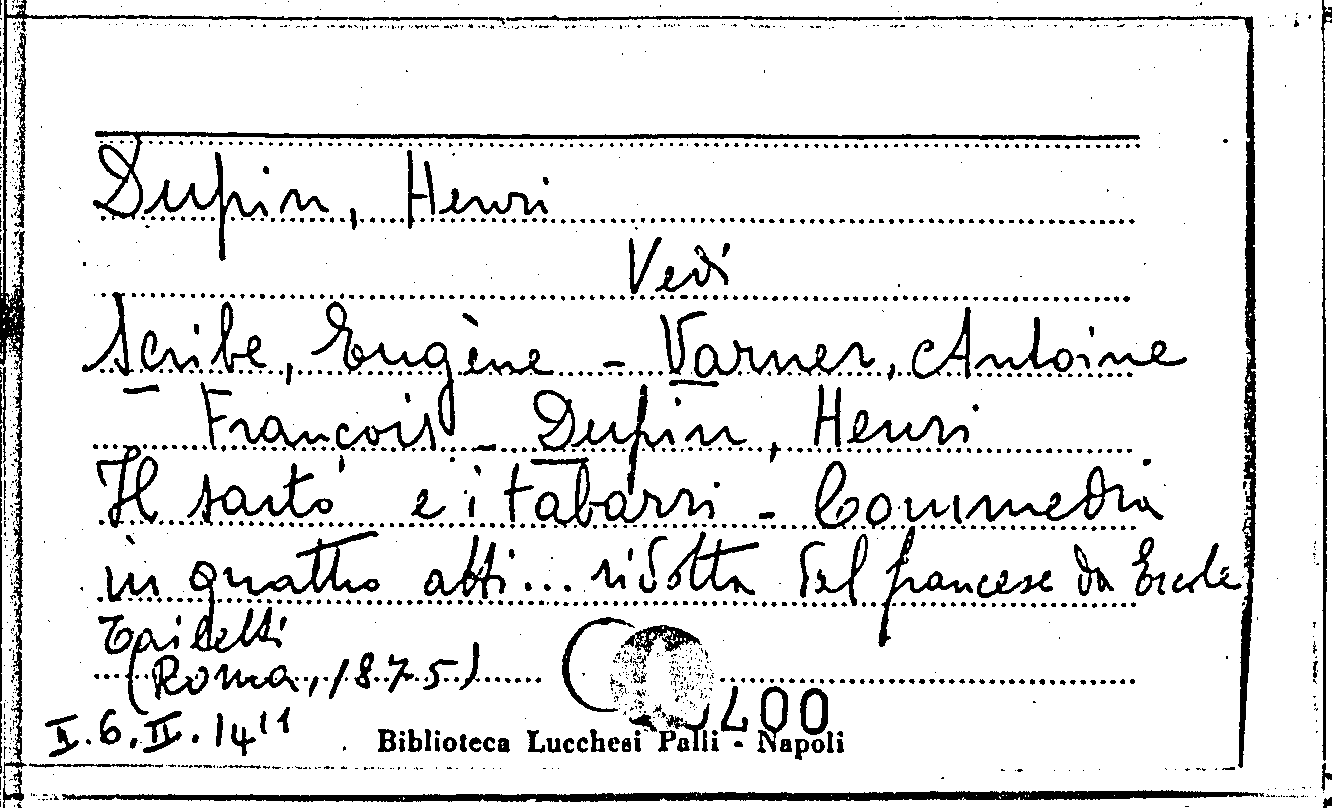 Dupin, Henri
Vedi
Scribe, Eugène - Varner, Antoine
François - Dupin, Henri
Il sarto e i tabarri - Commedia
in quattro atti... ridotta dal francese da Ercole
(Roma, 1875)
400
I.6.II.14
Biblioteca Lucchesi Palli - Napoli